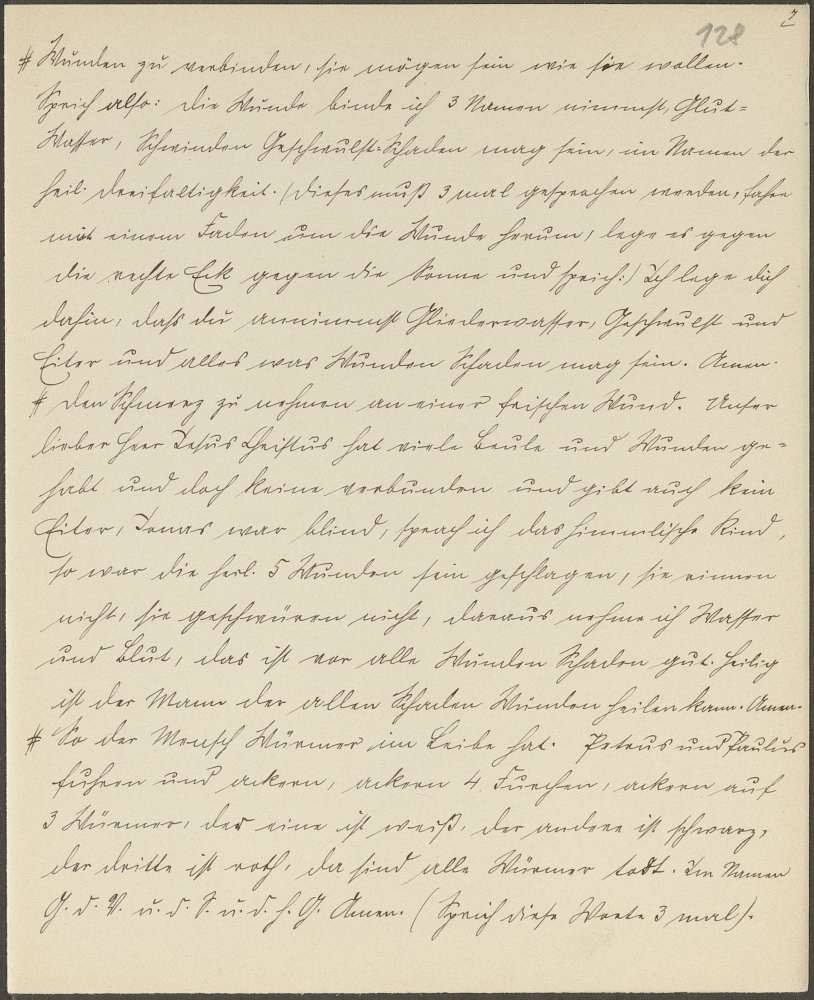 128
2
# Wunden zu verbinden, sie mögen sein wie sie wollen.
Sprich also: die Wunde binde ich 3 Namen nimmst, Glut=
Wasser, Schwinden Geschwulst-Schaden mag sein, im Namen der
heil. dreifaltigkeit. (dieses muß 3 mal gesprochen werden, fahre
mit einem Faden um die Wunde herum, lege es gegen
die rechte Eck gegen die Sonne und sprich:) Ich lege dich
dahin, dass du annimmst Gliederwasser, Geschwulst und
Eiter und alles was Wunden Schaden mag sein. Amen.
# den Schmerz zu nehmen an einer frischen Wund. Unser
lieber Herr Jesus Christus hat viele Beule und Wunden ge=
habt und doch keine verbunden und gibt auch kein
Eiter, Jonas war blind, sprach ich das himmlische Kind,
so war die heil. 5 Wunden sein geschlagen, sie rinnen
nicht, sie geschwüren nicht, daraus nehme ich Wasser
und Blut, das ist vor alle Wunden Schaden gut. Heilig
ist der Mann der allen Schaden Wunden heilen kann. Amen.
# So der Mensch Würmer im Leibe hat. Petrus und Paulus
fuhren und ackern, ackern 4 Furchen, ackern auf
3 Würmer, der eine ist weiß, der andere ist schwarz,
der dritte ist roth, da sind alle Würmer todt. Im Namen
G. d. V. u. d. S. u. d. h. G. Amen. (Sprich diese Worte 3 mal).